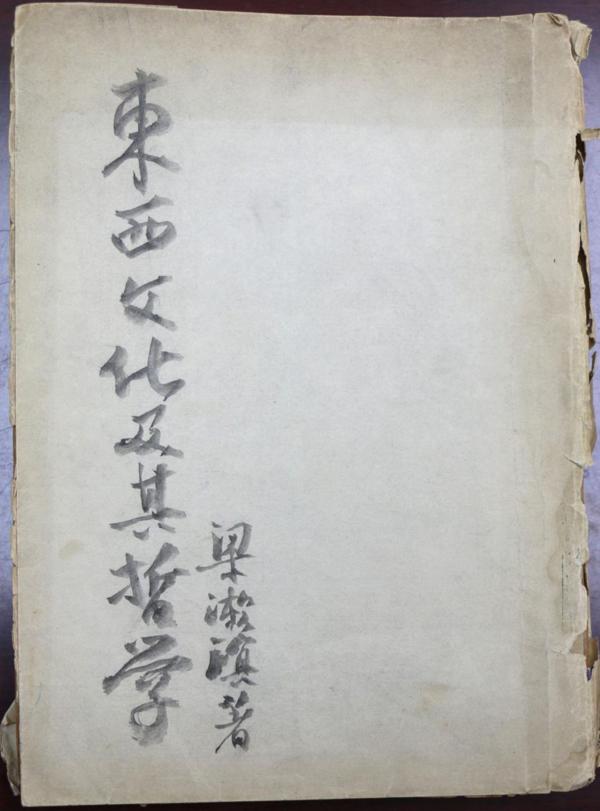 東西文化及其哲学
梁漱溟著